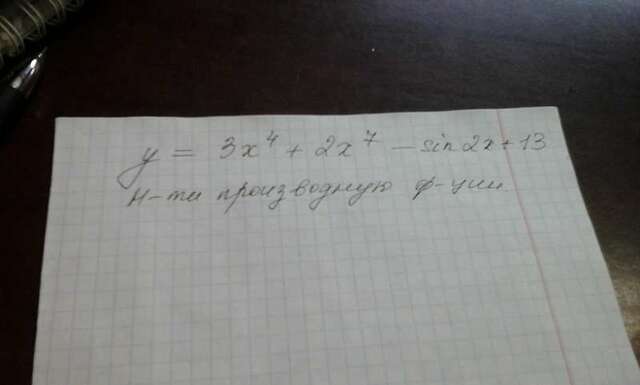 y = 3x⁴ + 2x⁷ - sin 2x + 13
н-ти производную ф-ции.